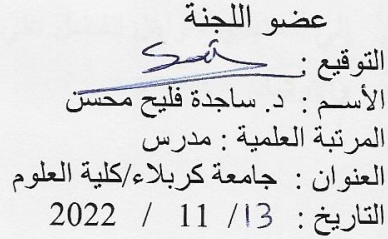 عضو اللجنة
التوقيع :
الأسم : د. ساجدة فليح محسن
المرتبة العلمية : مدرس
العنوان : جامعة كربلاء/كلية العلوم
التاريخ : 13/ 11 / 2022